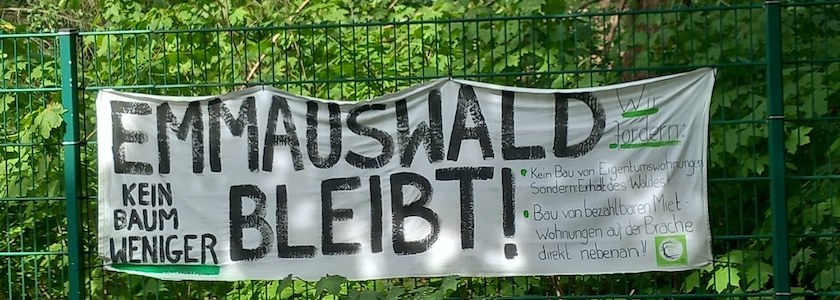 EMMAUSWALD
BLEIBT!
KEIN
BAUM
WENIGER
Wir
fordern:
Kein Bau von Eigentumswohnungen
Sondern: Erhalt des Waldes!
Bau von bezahlbaren Miet-
Wohnungen auf der Brache
direkt nebenan!!